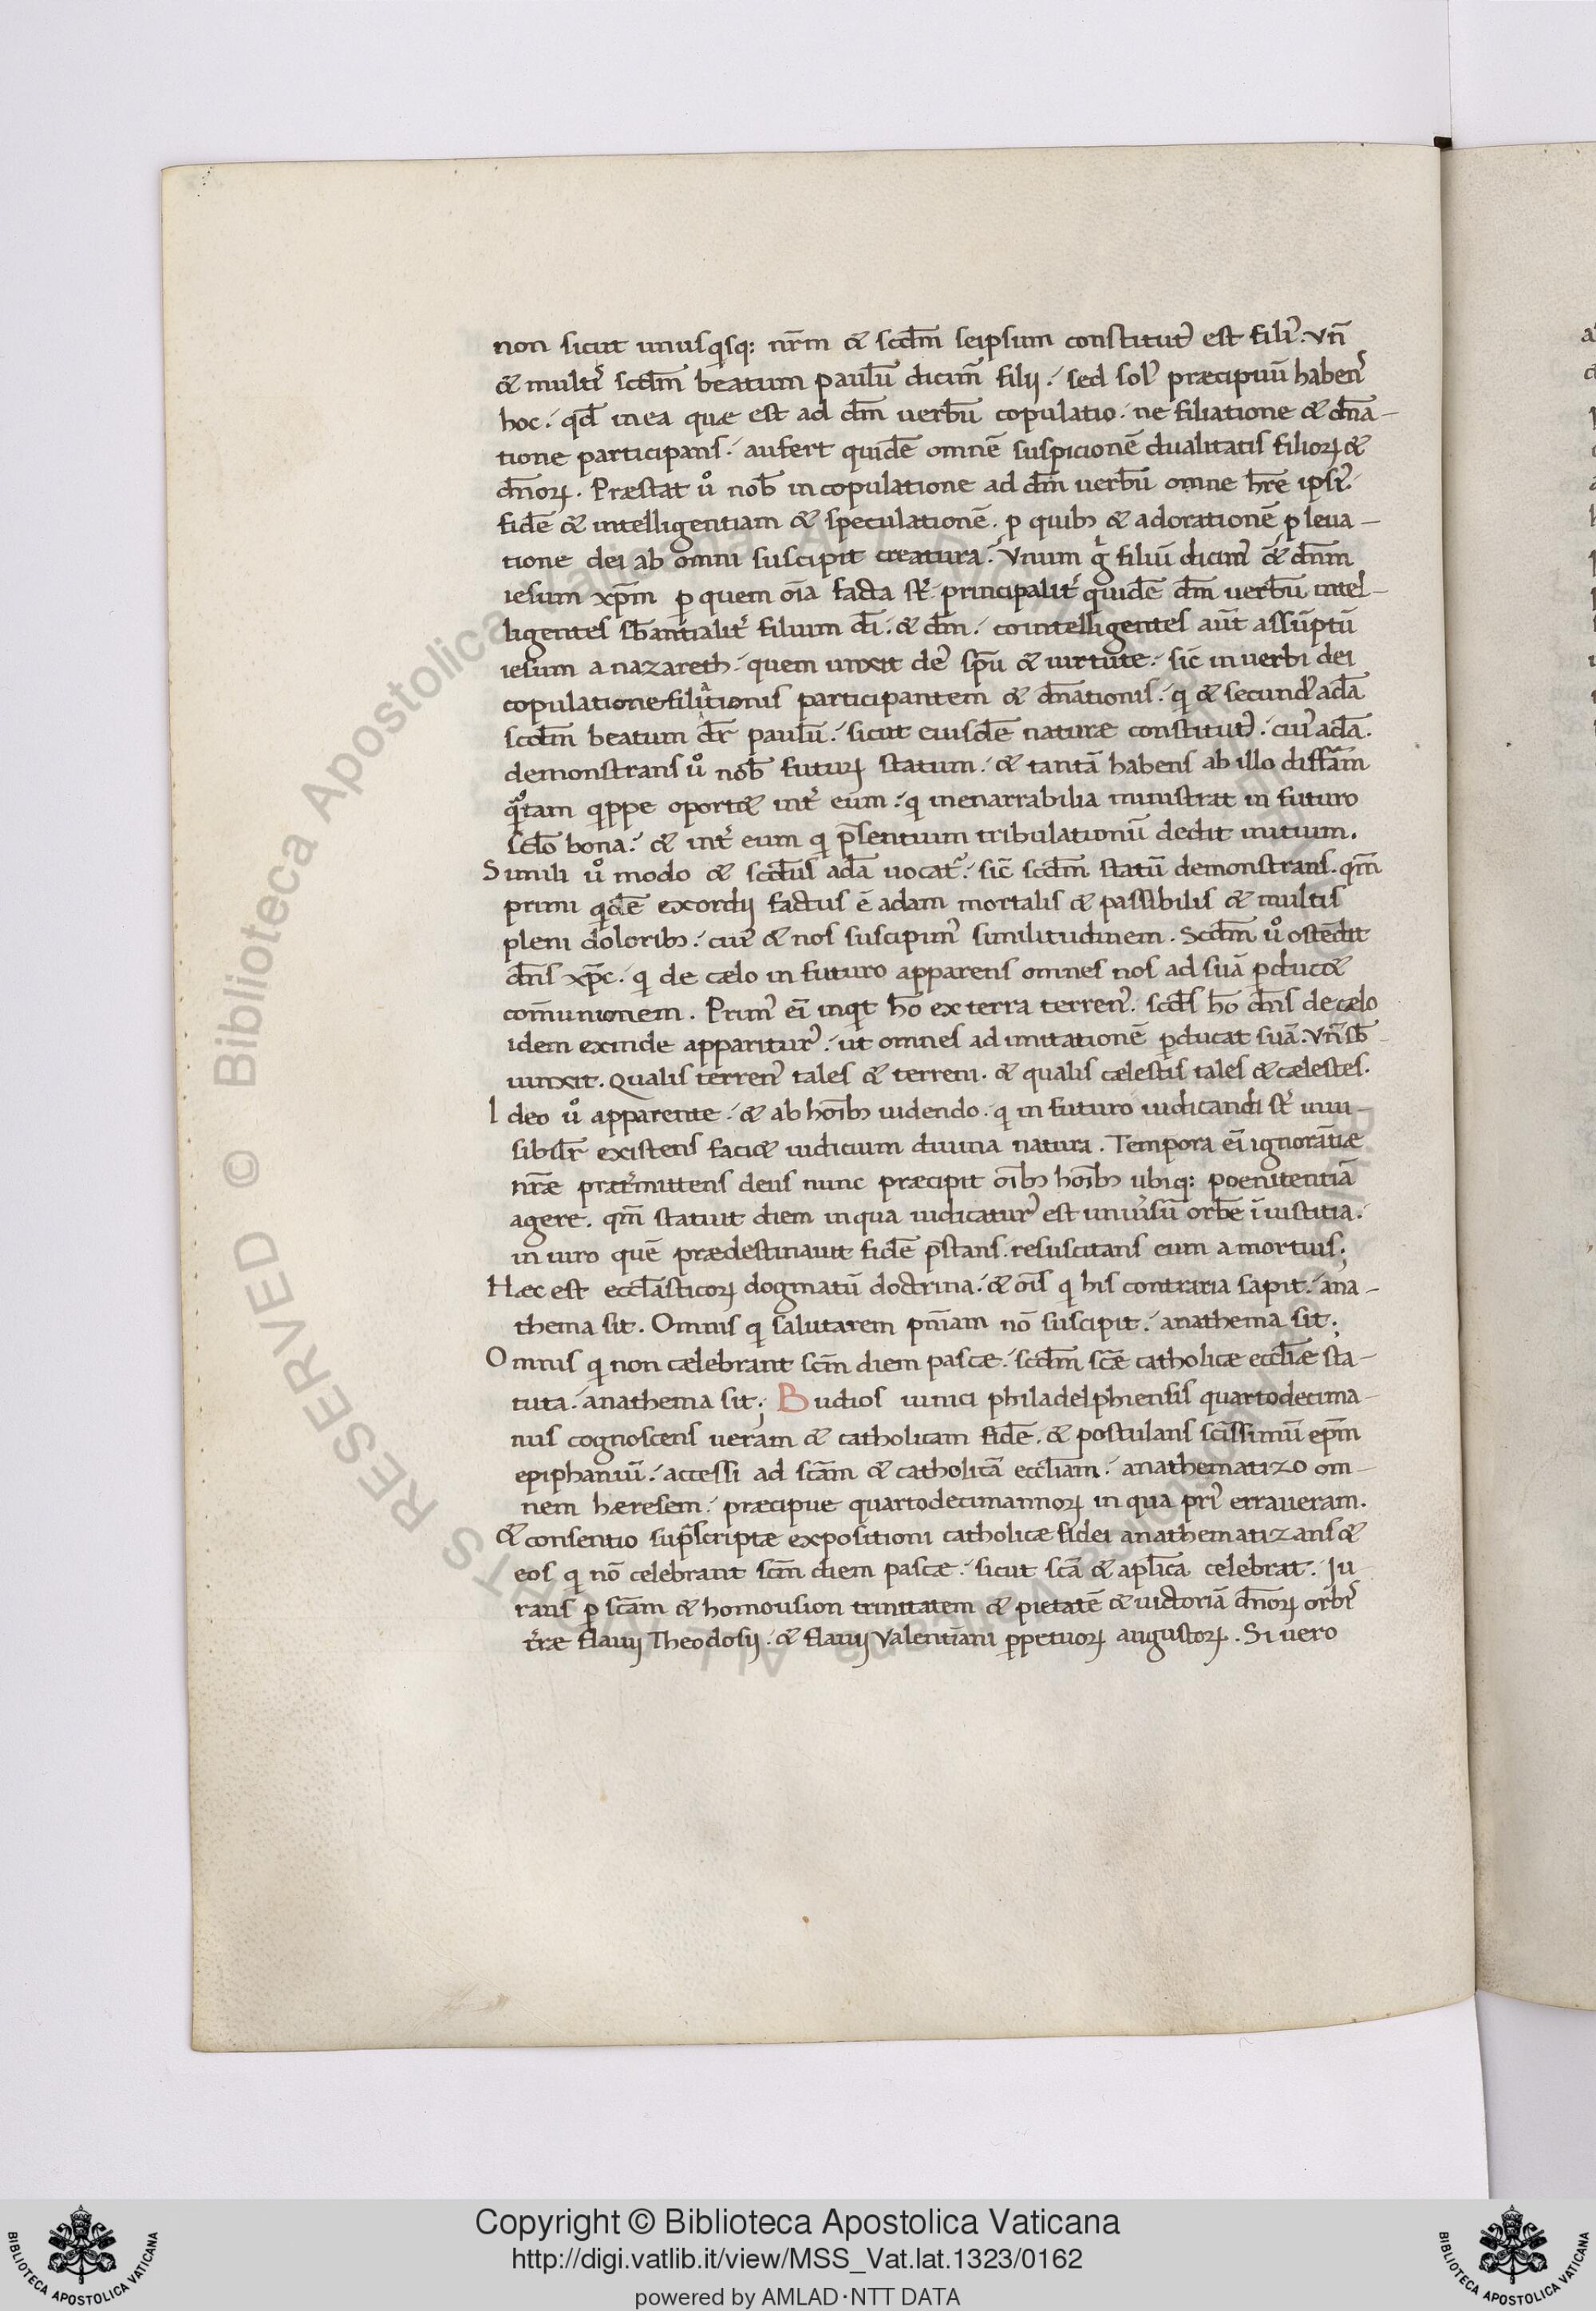 non sicut unusqsq: nr̄m & scd̄m seipsum constitut᾿ est fili᾿. Vn̄
& multi᾿ scd̄m beatum paulū dicim̄ filij. sed sol᾿ præcipuū haben᾿
hoc. qd̄ in ea quæ est ad dm̄ uerbū copulatio. ne filiatione & dn̄a-
tione participans. aufert quidē omnē suspicionē dualitatis filioꝝ &
dn̄oꝝ. Præstat uº nob̄ in copulatione ad dm̄ uerbū omne hr̄e ipsi᾿.
fidē & intelligentiam & speculationē. ꝑ quibꝫ & adorationē ꝑ leua-
tione dei ab omni suscipit creatura. Vnum gͥ filiū dicim᾿ & dn̄m
iesum xp̄m ꝑ quem oīa facta st᾿. principalit᾿ quidē dm̄ uerbū intel-
ligentes sb̄antialit᾿ filium di̅. & dm̄. cointelligentes aūt assūptū
iesum a nazareth. quem unxit de᾿ sp̄u & uirtute. sic̄ in uerbi dei
copulatione filiationis participantem & dn̄ationis. q & secund᾿ adā
scd̄m beatum dr̄ paulū. sicut eiusdē naturæ constitut᾿. cui᾿ adā.
demonstrans uº nob̄ futuꝝ statum. & tantā habens ab illo diffām
qͣtam qppe oport& int᾿ eum. q inenarrabilia ministrat in futuro
scl̄o bona. & int᾿ eum q p̄sentium tribulationū dedit initium.
Simili uº modo & scd̄us adā uocat᾿. sic̄ scd̄m statū demonstrans. qm̄
primi qdē exordij factus ē adam mortalis & passibilis & multis
pleni doloribꝫ. cui᾿ & nos suscipim᾿ similitudinem. Scd̄m uº ostēdit
dn̄s xp̄c. q de cælo in futuro apparens omnes nos ad suā ꝑduc&
com̄unionem. Prim᾿ eī inqt ho̅ ex terra terren᾿. scd̄s ho̅ dn̄s de cælo
idem exinde apparitur᾿. ut omnes ad imitationē ꝑducat suā. Vn̄ sb̄-
iunxit. Qualis terren᾿ tales & terreni. & qualis cælestis tales & cælestes.
Ideo uº apparente. & ab ho̅ibꝫ uidendo. q in futuro iudicandi st᾿ inui-
sibilr̄ existens faci& iudicium diuina natura. Tempora eī ignorātiæ
nr̄æ præt᾿mittens deus nunc præcipit oi̅bꝫ ho̅ibꝫ ubiq: poenitentiā
agere. qm̄ statuit diem in qua iudicatur᾿ est uniu᾿sū orbē ī iustitia.
in uiro quē prædestinauit fidē p̄stans. resuscitans eum a mortuis;
Hæc est eccl̄asticoꝝ dogmatū doctrina. & oi̅s q his contraria sapit. ana-
thema sit. Omnis q salutarem pn̄iam nō suscipit. anathema sit;
Omnis q non cælebrant scm̄ diem pascæ. scd̄m scǣ catholicæ eccl̄iæ sta-
tuta. anathema sit; Budios iunici philadelphiensis quartodecima-
nus cognoscens ueram & catholicam fidē. & postulans scīssimū ep̄m
epiphaniū. accessi ad scām & catholicā eccl̄iam. anathematizo om-
nem hæresem. præcipue quartodecimannoꝝ in qua pri᾿ erraueram.
& consentio sup̄scriptæ expositioni catholicæ fidei anathematizans &
eos q nō celebrant scm̄ diem pascæ. sicut scā & apl̄ica celebrat. Iu
rans ꝑ scām & homousion trinitatem & pietatē & uictoriā dn̄oꝝ orbi᾿
t᾿ræ flauij Theodosij. & flauij Valentīani ꝑpetuoꝝ augustoꝝ. Si uero
Copyright © Biblioteca Apostolica Vaticana
http://digi.vatlib.it/view/MSS_Vat.lat.1323/0162
powered by AMLAD·NTT DATA